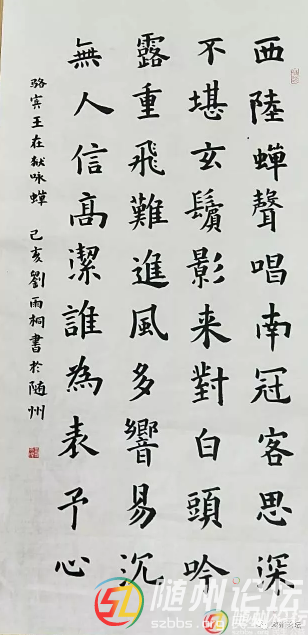 西陸蟬聲唱南冠客思深
不堪玄鬢影来對白頭吟
露重飛難進風多響易沉
無人信高潔誰為表予心
駱宾王在狱咏蟬 己亥劉雨桐書於随州
随州论坛
szbbs.org